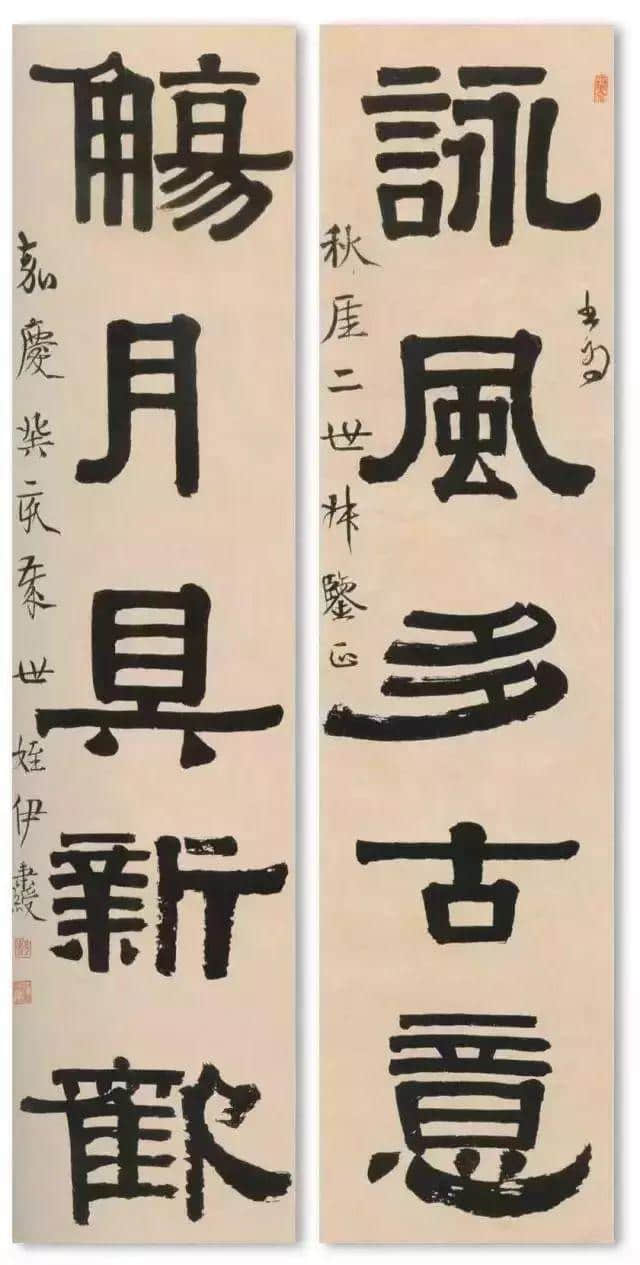 詠風多古意
秋厓二世叔鑒正
觴月具新歡
嘉慶癸亥 世姪伊秉綬